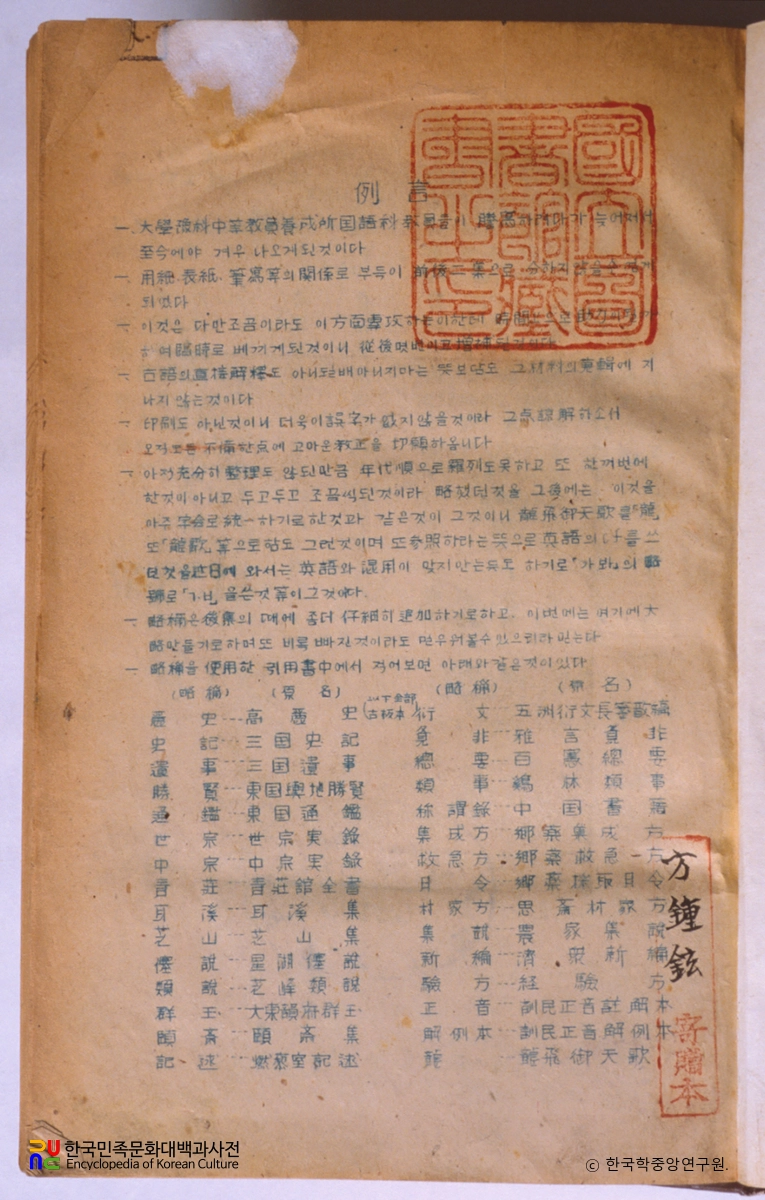 例言
一、大學預科中等敎員養成所国語科敎員들이 謄寫하려다가 늦어져서
至今에야 겨우 나오게된것이다
一、用紙、表紙、筆寫等의關係로 부득이 前後二集으로
되었다
一、이것은 다만조곰이라도 이方面專攻하는이한테 時間
하여臨時로 베끼게된것이니 從後몇번이고增補될것이다
一、古語의直接解釋도 아니되는배아니지마는 뜻보담도 그材料의蒐輯에 지
나지 않는것이다
一、印刷도 아닌것이니 더욱이誤字가 없지않을것이라 그点諒解하소서
오직모든不備한点에 고마운敎正을 切願하옵니다
一、아직充分히整理도 않된만큼 年代順으로羅列도못하고 또 한꺼번에
한것이아니고 두고두고 조금식된것이라 略했던것을 그後에는 이것을
아주 字會로統一하기로한것과 같은것이 그것이니 龍飛御天歌를「龍」
또「龍歌」等으로함도 그런것이며 또參照하라는뜻으로英語의 를쓰
던것을近日에 와서는英語와 混用이 맞지안는듯도 하기로「가봐」의 略
號로「ㄱㅂ」을쓴것等이그것이다.
一、略稱은後集의 때에 좀더 仔細히追加하기로하고、이번에는 여기에大
略만들기로하며또 비록빠진것이라도 면우워볼수있으리라믿는다
一、略稱을使用한 引用書中에서 적어보면 아래와같은것이있다
(略稱) (原名) (以下全部古板本) (略稱) (原名)
麗史…高麗史 衍文…五洲衍文長箋散稿
史記…三国史記 覓非…雅言覓非
遺事…三国遺事 總要…百憲總要
勝覽…東国輿地勝覽 類事…鷄林類事
通鑑…東国通鑑 称謂錄…中国書籍
世宗…世宗実錄 集成方…鄕藥集成方
中宗…中宗実錄 救急方…鄕藥救急方
靑莊…靑莊館全書 月令…鄕藥採取月令
耳溪…耳溪集 村家方…思斎村家方
芝山…芝山集 集說…農家集說
僿說…星湖僿說 新編…濟衆新編
類說…芝峰類說 驗方…経驗方
群玉…大東韻府群玉 正音…訓民正音註解本
頤斎…頤斎集 解例本…訓民正音解例本
記述…燃藜室記述 龍…龍飛御天歌
國立圖書館藏書之印
方鍾鉉
寄贈本
한국민족문화대백과사전
Encyclopedia of Korean Culture
ⓒ 한국학중앙연구원.